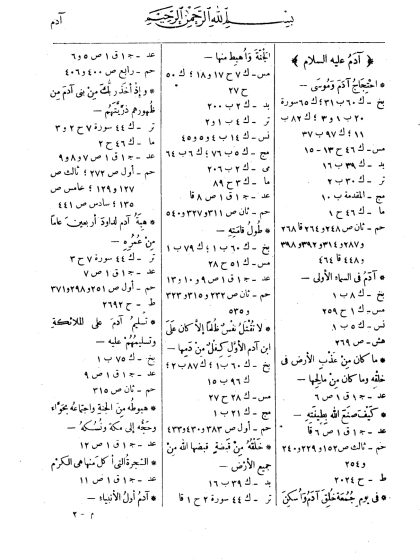 بِسْمِ اللهِ الرَّحْمٰنِ الرَّحِيْمِ
آدم
﴿ آدمُ عليه السلام ﴾
* احتجاجُ آدمَ ومُوسى —
بخ – ك ٦٠ ب ٣١؛ ك ٦٥ سورة
٢٠ ب ١ و ٣؛ ك ٨٢ ب
١١؛ ك ٩٧ ب ٣٧
مس – ك ٤٦ ح ١٣ – ١٥
بد – ك ٣٩ ب ١٦
تر – ك ٣٠ ب ٢
مج – المقدمة ب ١٠
ما – ك ٤٦ ح ١
حم – ثان ص ٢٤٨ و ٢٦٤ و ٢٦٨
و ٢٨٧ و ٣١٤ و ٣٩٢ و ٣٩٨
و ٤٤٨ و ٤٦٤
* آدمُ فى السماء الأولى —
بخ – ك ٨ ب ١
مس – ك ١ ح ٢٥٩
نس – ك ٥ ب ١
هش – ص ٢٦٩
* ما كان مِنْ عَذْبِ الأرض فى
خلقه وما كان مِنْ مالِحِها —
عد – ج ١ ق ١ ص ٦
* كَيْفَ صنَع الله بِطِينَتِه —
عد – ج ١ ق ١ ص ٦ قا
حم – ثالث ص ١٥٢ و ٢٢٩ و ٢٤٠
و ٢٥٤
ط – ح ٢٠٢٤
* فى يومِ جُمُعَة خُلِق آدمُ وأُسكِنَ
الجنّةَ وأُهبِطَ منها —
مس – ك ٧ ح ١٧ و ١٨؛ ك ٥٠
ح ٢٧
بد – ك ٢ ب ٢٠٠
تر – ك ٤ ب ١ و ٢
نس – ك ١٤ ب ٤ و ٥ و ٤٥
مج – ك ٥ ب ٧٦؛ ك ٦ ب ٦٤
مى – ك ٢ ب ٢٠٦
ما – ك ٣ ح ٨٩
عد – ج ١ ق ١ ص ٨ قا
حم – ثان ص ٣١١ و ٣٢٧ و ٥٤٠
* طُولُ قامَتِهِ —
بخ – ك ٦٠ ب ١؛ ك ٧٩ ب ١
مس – ك ٥١ ح ٢٨
عد – ج ١ ق ١ ص ٩ و ١٠ و ١٣
حم – ثان ص ٢٣٢ و ٣١٥ و ٣٢٣
و ٥٣٥
* لا تُقْتَلُ نَفْسٌ ظُلمًا إلا كان على
ابن آدمَ الأوّلِ كِفْلٌ مِنْ دَمِها —
بخ – ك ٦٠ ب ١؛ ك ٨٧ ب ٢؛
ك ٩٦ ب ١٥
مس – ك ٢٨ ح ٢٧
مج – ك ٢١ ب ١
حم – أول ص ٣٨٣ و ٤٣٠ و ٤٣٣
* خَلْقُهُ مِنْ قَبْضةٍ قبضها الله من
جميعِ الأرض —
بد – ك ٣٩ ب ١٦
تر – ك ٤٤ سورة ٢ ح ١ قا
عد – ج ١ ق ١ ص ٥ و ٦
حم – رابع ص ٤٠٠ و ٤٠٦
* و إذ أخذ رَبُّكَ مِنْ بنى آدمَ مِن
ظُهورهم ذرّيّتَهُم —
تر – ك ٤٤ سورة ٧ ح ٢ و ٣
ما – ك ٤٦ ح ٢
عد – ج ١ ق ١ ص ٧ و ٨ و ٩
حم – أول ص ٢٧٢؛ ثالث ص
١٢٧ و ١٢٩؛ خامس ص
١٣٥؛ سادس ص ٤٤١
* هِبَةُ آدمَ لداودَ أربعين عامًا
مِنْ عُمُرِهِ —
تر – ك ٤٤ سورة ٧ ح ٣
عد – ج ١ ق ١ ص ٧
حم – أول ص ٢٥١ و ٢٩٨ و ٣٧١
ط – ح ٢٦٩٢
* تسليمُ آدمَ على الملائكة
وتسليمُهُم عليه —
بخ – ك ٧٥ ب ١
عد – ج ١ ق ١ ص ٩
حم – ثان ص ٣١٥
* هبوطُه من الجنة واجتماعُه بحَوّاءَ
وحجُّه إلى مكة ونُسُكُه —
عد – ج ١ ق ١ ص ١٢
* الشجرة التى أكل منها هى الكَرْم
عد – ج ١ ق ١ ص ١١
* آدمُ أوّلُ الأنبياء —
م – ٢